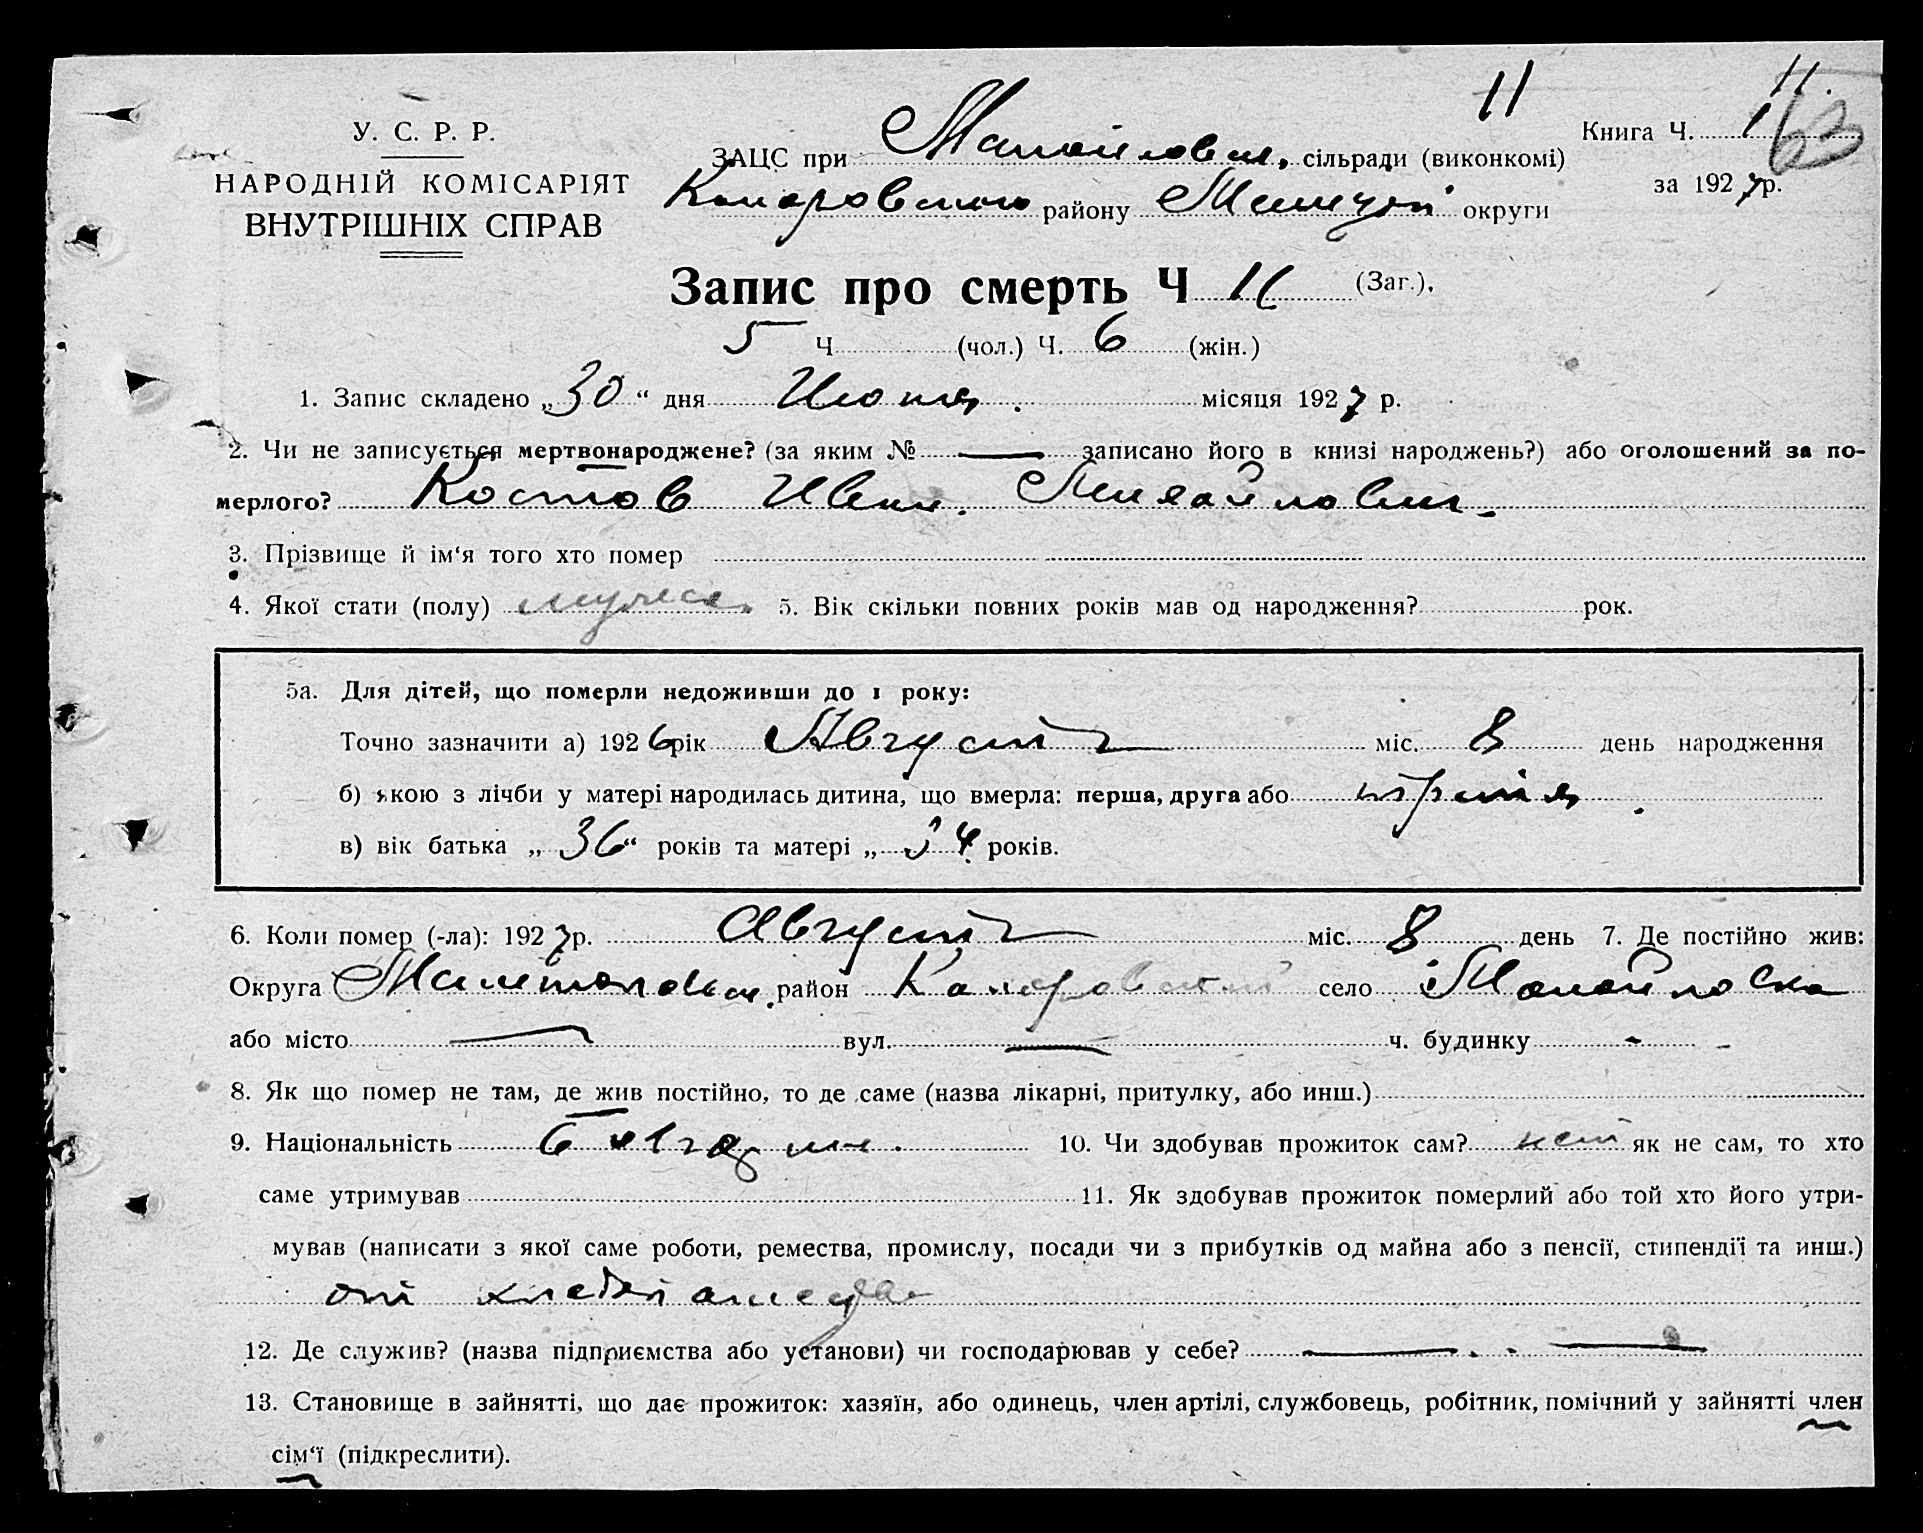 11 11.
У. С. Р. Р.
НАРОДНІЙ КОМІСАРІЯТ
ВНУТРІШНІХ СПРАВ
ЗАЦС при сільради (виконкомі)
району округи
Книга Ч. 1 63
за 1927 р.
Запис про смерть Ч 11 (Заг.),
5 Ч (чол.) Ч. 6 (жін.)
1. Запис складено „30“ дня місяця 1927 р.
2. Чи не записується мертвонароджене? (за яким № — записано його в книзі народжень?) або оголошений за по-
мерлого? Костов Иван. Михайлович.
3. Прізвище й ім‘я того хто помер
4. Якої стати (полу) 5. Вік скільки повних років мав од народження? рок.
5а. Для дітей, що померли недоживши до 1 року:
Точно зазначити а) 1926 рік Август міс. 8 день народження
б) якою з лічби у матері народилась дитина, що вмерла: перша, друга або третя
в) вік батька „36“ років та матері „34 років.
6. Коли помер (-ла): 1927 р. Август міс. 8 день 7. Де постійно жив:
Округа район село
або місто — вул. — ч. будинку -
8. Як що помер не там, де жив постійно, то де саме (назва лікарні, притулку, або инш.)
9. Національність болгарин. 10. Чи здобував прожиток сам? нет як не сам, то хто
саме утримував 11. Як здобував прожиток померлий або той хто його утри-
мував (написати з якої саме роботи, ремества, промислу, посади чи з прибутків од майна або з пенсії, стипендії та инш.)
от хлебопашества
12. Де служив? (назва підприємства або установи) чи господарював у себе? —
13. Становище в зайнятті, що дає прожиток: хазяїн, або одинець, член артілі, службовець, робітник, помічний у зайнятті член
сім‘ї (підкреслити).